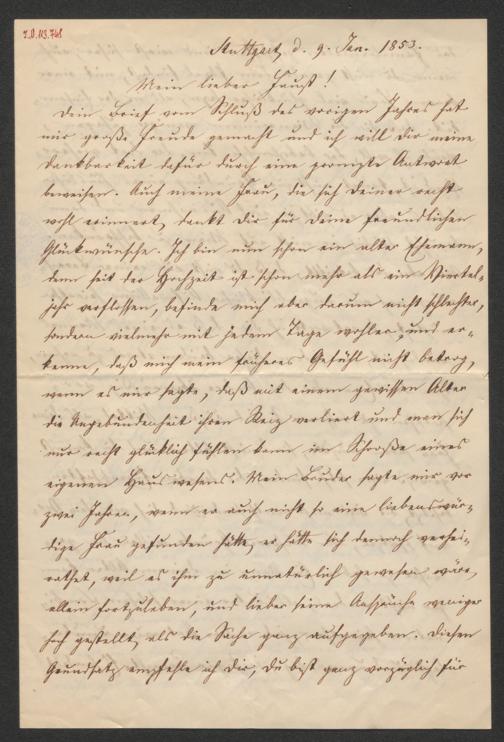 I.N.113.748
Stuttgart, d. 9. Jan. 1853.
Mein lieber Faust!
Dein Brief vom Schluß des vorigen Jahres hat
mir große Freude gemacht und ich will Dir meine
Dankbarkeit dafür durch eine prompte Antwort
beweisen. Auch meine Frau, die sich Deiner recht
wohl erinnert, dankt Dir für Deine freundlichen
Glückwünsche. Ich bin nun schon ein alter Ehemann,
denn seit der Hochzeit ist schon mehr als ein Viertel-
jahr verflossen, befinde mich aber darum nicht schlechter,
sondern vielmehr mit jedem Tage wohler, und er-
kenne, daß mich mein früheres Gefühl nicht betrog,
wenn es mir sagte, daß mit einem gewissen Alter
die Ungebundenheit ihren Reiz verliert und man sich
nur recht glücklich fühlen kann im Schooße eines
eigenen Hauswesens. Mein Bruder sagte mir vor
zwei Jahren, wenn er auch nicht so eine liebenswür-
dige Frau gefunden hätte, er hätte sich dennoch verhei-
rathet, weil es ihm zu unnatürlich gewesen wäre,
allein fortzuleben, und lieber seine Ansprüche weniger
hoch gestellt, als die Sache ganz aufgegeben. Diesen
Grundsatz empfehle ich Dir, Du bist ganz vorzüglich für